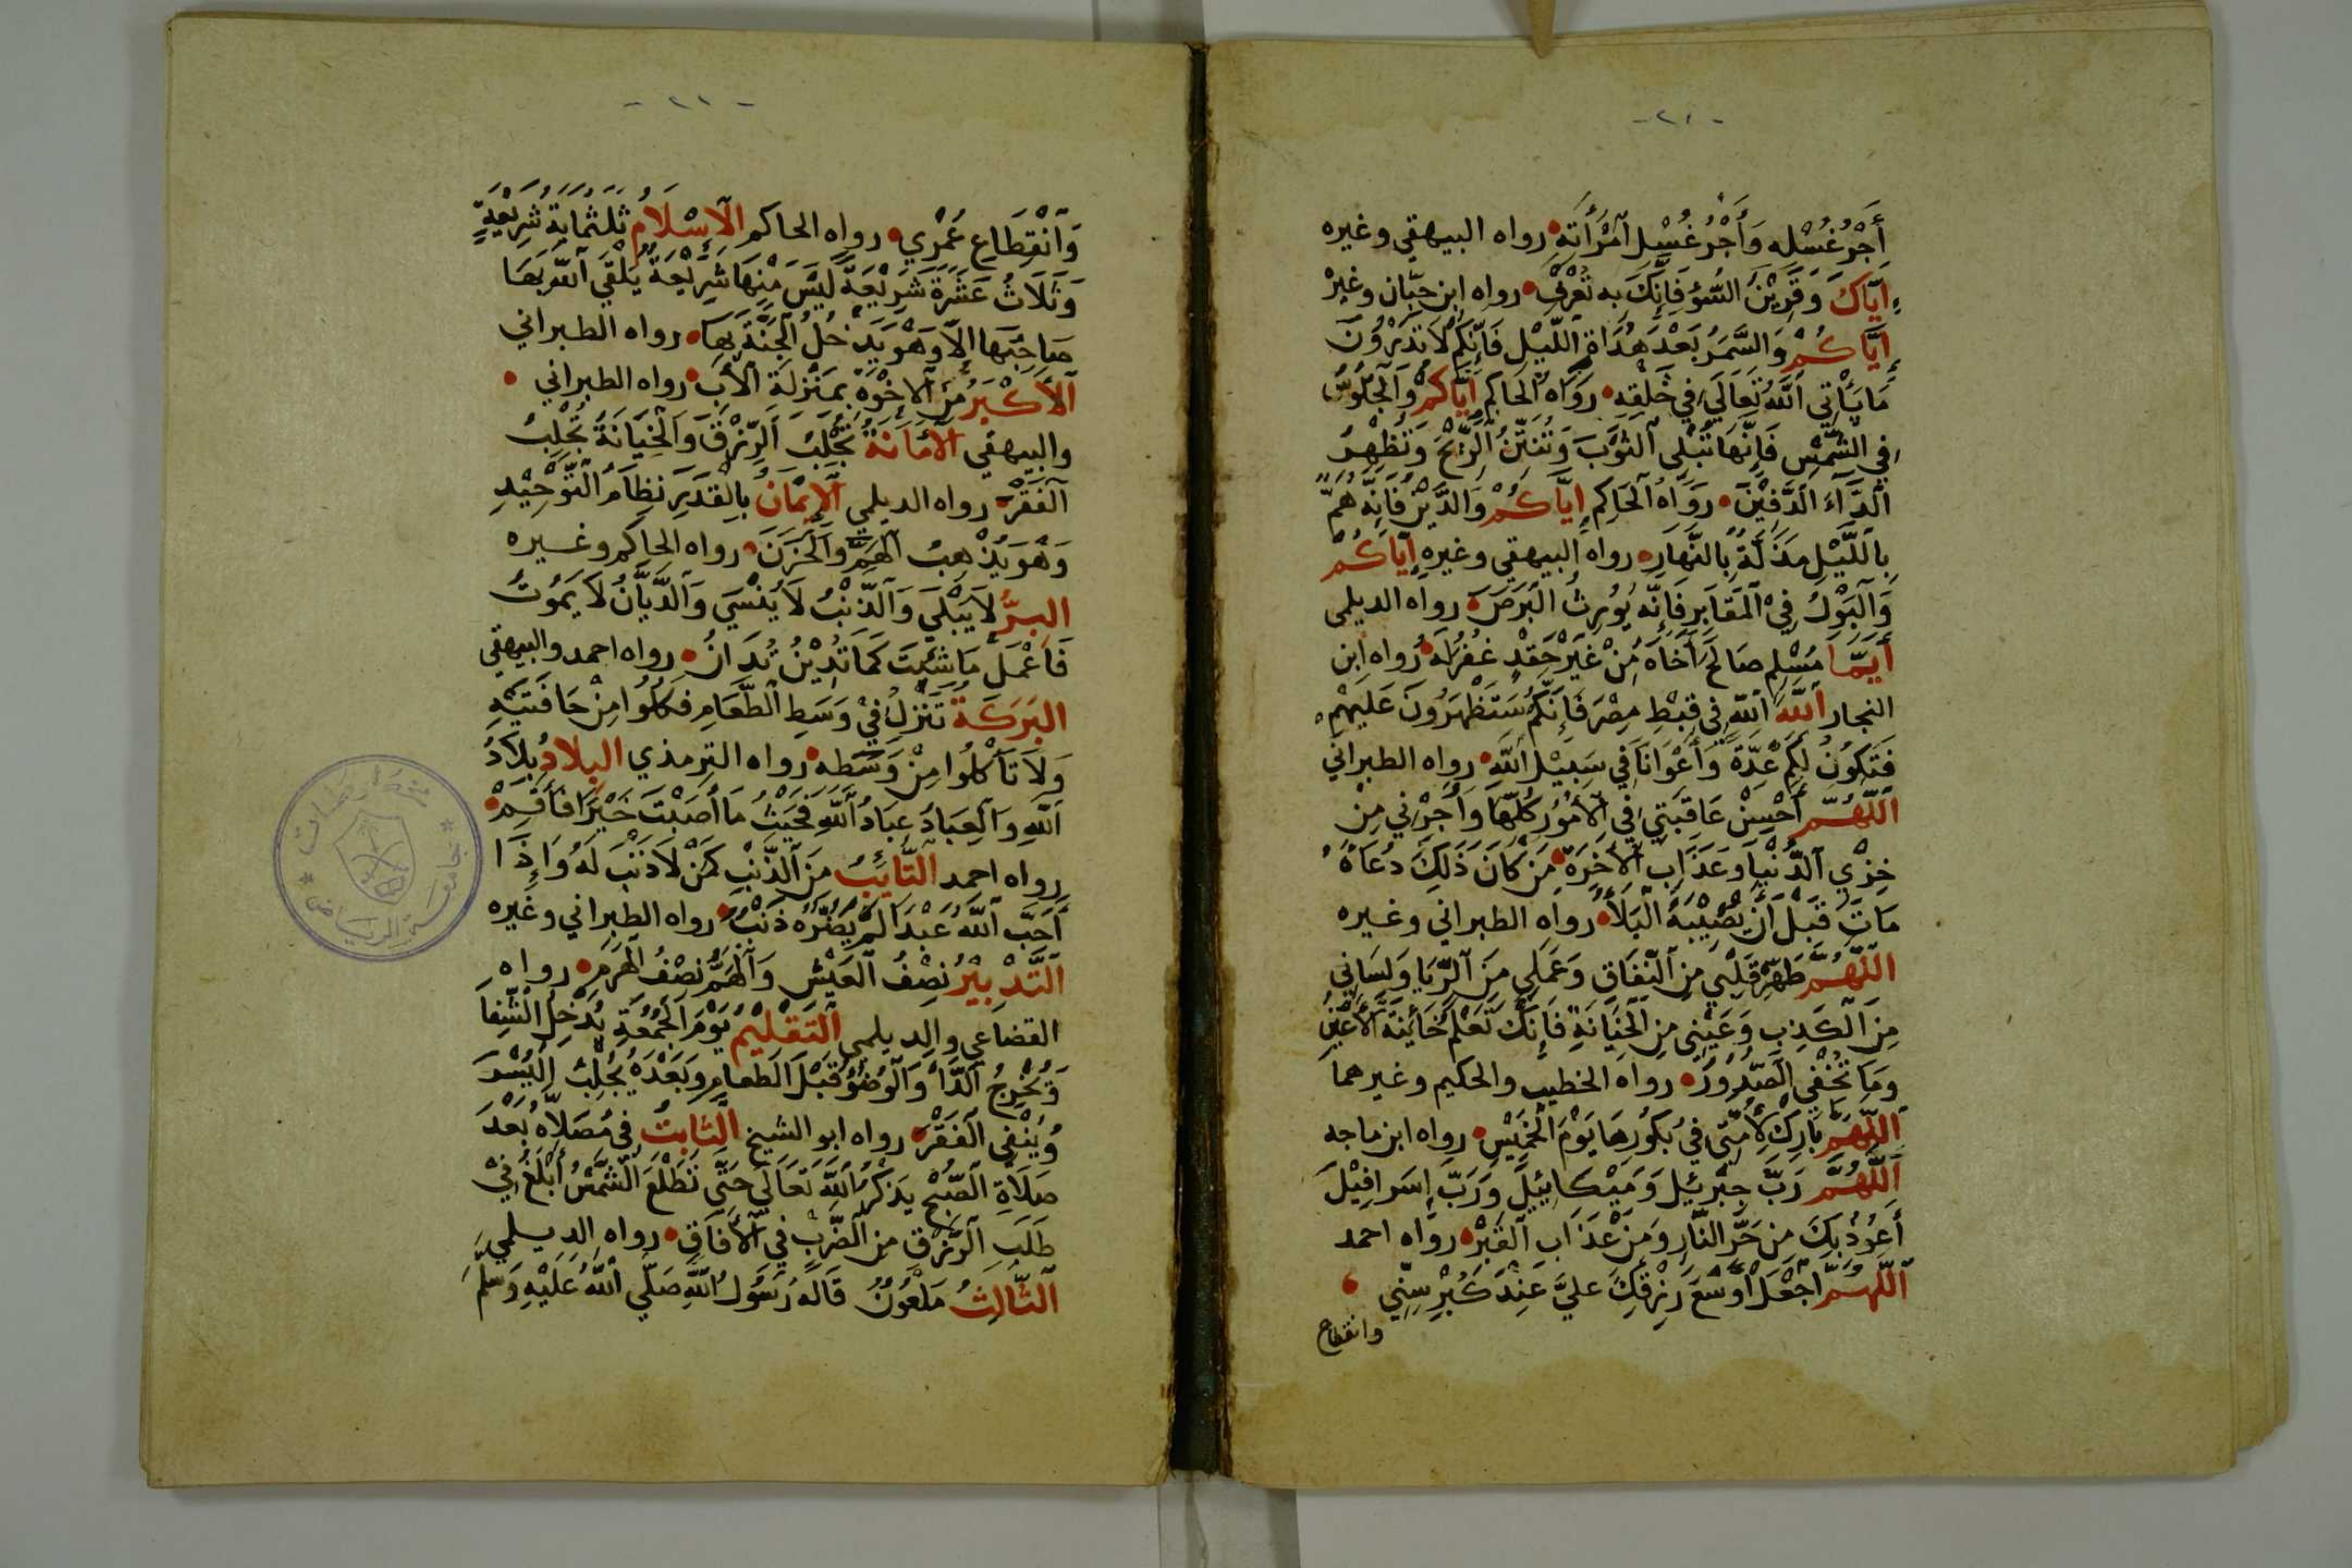 -٢١-
أَجْرُ غُسْلِه وَأَجْرُ غُسْلِ امْرَأَتِهِ رواه البيهقي وغيره
إِيَّاكَ وَقَرِيْنَ السُّوْءِ فَإِنَّكَ بِه تُعْرَفُ رواه ابن حبّان وغيره
إِيَّاكُمْ وَالسَّمَرَ بَعْدَ هَدْأَةِ اللَّيْلِ فَإِنَّكُمْ لَا تَدْرُوْنَ
مَا يَأْتِي اللهُ تَعَالَى فِي خَلْقِهِ رَوَاهُ الحَاكِم إِيَّاكُمْ وَالْجُلُوْسَ
فِي الشَّمْسِ فَإِنَّهَا تُبْلِي الثَّوْبَ وَتُنْتِنُ الرِّيْحَ وَتُظْهِرُ
الدَّآءَ الدَّفِيْنَ رَوَاهُ الحَاكِم إِيَّاكُمْ وَالدَّيْنَ فَإِنَّهُ هَمٌّ
بِاللَّيْلِ مَذَلَّةٌ بِالنَّهَارِ رواه البيهقي وغيره إِيَّاكُمْ
وَالْبَوْلَ فِيْ الْمَقَابِرِ فَإِنَّهُ يُوْرِثُ الْبَرَصَ رواه الديلمي
أَيُّمَا مُسْلِمٍ صَالَحَ أَخَاهُ مِنْ غَيْرِ حِقْدٍ غُفِرَ لَهُ رواه ابن
النجار اللهَ اللهَ فِي قِبْطِ مِصْرَ فَإِنَّكُمْ سَتَظْهَرُوْنَ عَلَيْهِمْ
فَتَكُوْنُ لَكُمْ عُدَّةً وَأَعْوَانًا فِي سَبِيْلِ اللهِ رواه الطبراني
اللّٰهُمَّ أَحْسِنْ عَاقِبَتِي فِي الْأُمُوْرِ كُلِّهَا وَأَجِرْنِي مِنْ
خِزْيِ الدُّنْيَا وَعَذَابِ الْآخِرَةِ مَنْ كَانَ ذَلِكَ دُعَاهُ
مَاتَ قَبْلَ أَنْ يُصِيْبَهُ الْبَلَاءُ رواه الطبراني وغيره
اللّٰهُمَّ طَهِّرْ قَلْبِي مِنَ النِّفَاقِ وَعَمَلِي مِنَ الرِّيَا وَلِسَانِي
مِنَ الْكَذِبِ وَعَيْنِي مِنَ الْخِيَانَةِ فَإِنَّكَ تَعْلَمُ خَائِنَةَ الْأَعْيُنِ
وَمَا تُخْفِي الصُّدُوْرُ رواه الخطيب والحكيم وغيرهما
اللّٰهُمَّ بَارِكْ لِأُمَّتِي فِي بُكُوْرِهَا يَوْمَ الْخَمِيْسِ رواه ابن ماجه
اللّٰهُمَّ رَبَّ جِبْرَئِيْلَ وَمِيْكَائِيْلَ وَرَبَّ إِسْرَافِيْلَ
أَعُوْذُ بِكَ مِنْ حَرِّ النَّارِ وَمِنْ عَذَابِ الْقَبْرِ رواه احمد
اللّٰهُمَّ اجْعَلْ أَوْسَعَ رِزْقِكَ عَلَيَّ عِنْدَ كِبَرِ سِنِّي
وانقطاع
-٢٢-
وَانْقِطَاعِ عُمْرِي رواه الحاكم الْإِسْلَامُ ثَلَثُمِايَةِ شَرِيْعَةٍ
وَثَلَاثُ عَشْرَةَ شَرِيْعَةً لَيْسَ مِنْهَا شَرِيْعَةٌ يَلْقَى اللهَ بِهَا
صَاحِبُهَا إِلَّا وَهُوَ يَدْخُلُ الْجَنَّةَ بِهَا رواه الطبراني
الْأَكْبَرُ مِنَ الْإِخْوَةِ بِمَنْزِلَةِ الْأَبِ رواه الطبراني
والبيهقي الْأَمَانَةُ تَجْلِبُ الرِّزْقَ وَالْخِيَانَةُ تَجْلِبُ
الْفَقْرَ رواه الديلمي الْإِيْمَانُ بِالْقَدَرِ نِظَامُ التَّوْحِيْدِ
وَهُوَ يُذْهِبُ الْهَمَّ وَالْحَزَنَ رواه الحاكم وغيره
البِرُّ لَا يَبْلَى وَالذَّنْبُ لَا يُنْسَى وَالدَّيَّانُ لَا يَمُوْتُ
فَاعْمَلْ مَا شِئْتَ كَمَا تَدِيْنُ تُدَانُ رواه احمد والبيهقي
البَرَكَةُ تَنْزِلُ فِيْ وَسَطِ الطَّعَامِ فَكُلُوا مِنْ حَافَتَيْهِ
وَلَا تَأْكُلُوا مِنْ وَسَطِه رواه الترمذي البِلَادُ بِلَادُ
اللهِ وَالْعِبَادُ عِبَادُ اللهِ فَحَيْثُ مَا أَصَبْتَ خَيْرًا فَأَقِمْ
رواه احمد التَّائِبُ مِنَ الذَّنْبِ كَمَنْ لَا ذَنْبَ لَهُ وَإِذَا
أَحَبَّ اللهُ عَبْدًا لَمْ يَضُرَّهُ ذَنْبٌ رواه الطبراني وغيره
التَّدْبِيْرُ نِصْفُ الْعَيْشِ وَالْهَمُّ نِصْفُ الْهَرَمِ رواه
القضاعي والديلمي التَّقْلِيْمُ يَوْمَ الْجُمُعَةِ يُدْخِلُ الشِّفَا
وَيُخْرِجُ الدَّاءَ وَالْوُضُوْءُ قَبْلَ الطَّعَامِ وَبَعْدَهُ يَجْلِبُ الْيُسْرَ
وَيَنْفِي الْفَقْرَ رواه ابو الشيخ الثَّابِتُ فِي مُصَلَّاهُ بَعْدَ
صَلَاةِ الصُّبْحِ يَذْكُرُ اللهَ تَعَالَى حَتَّى تَطْلُعَ الشَّمْسُ أَبْلَغُ فِيْ
طَلَبِ الرِّزْقِ مِنَ الضَّرْبِ فِي الْآفَاقِ رواه الديلمي
الثَّالِثُ مَلْعُوْنٌ قَالَهُ رَسُوْلُ اللهِ صَلَّى اللهُ عَلَيْهِ وَسَلَّمَ
جامعة الرياض